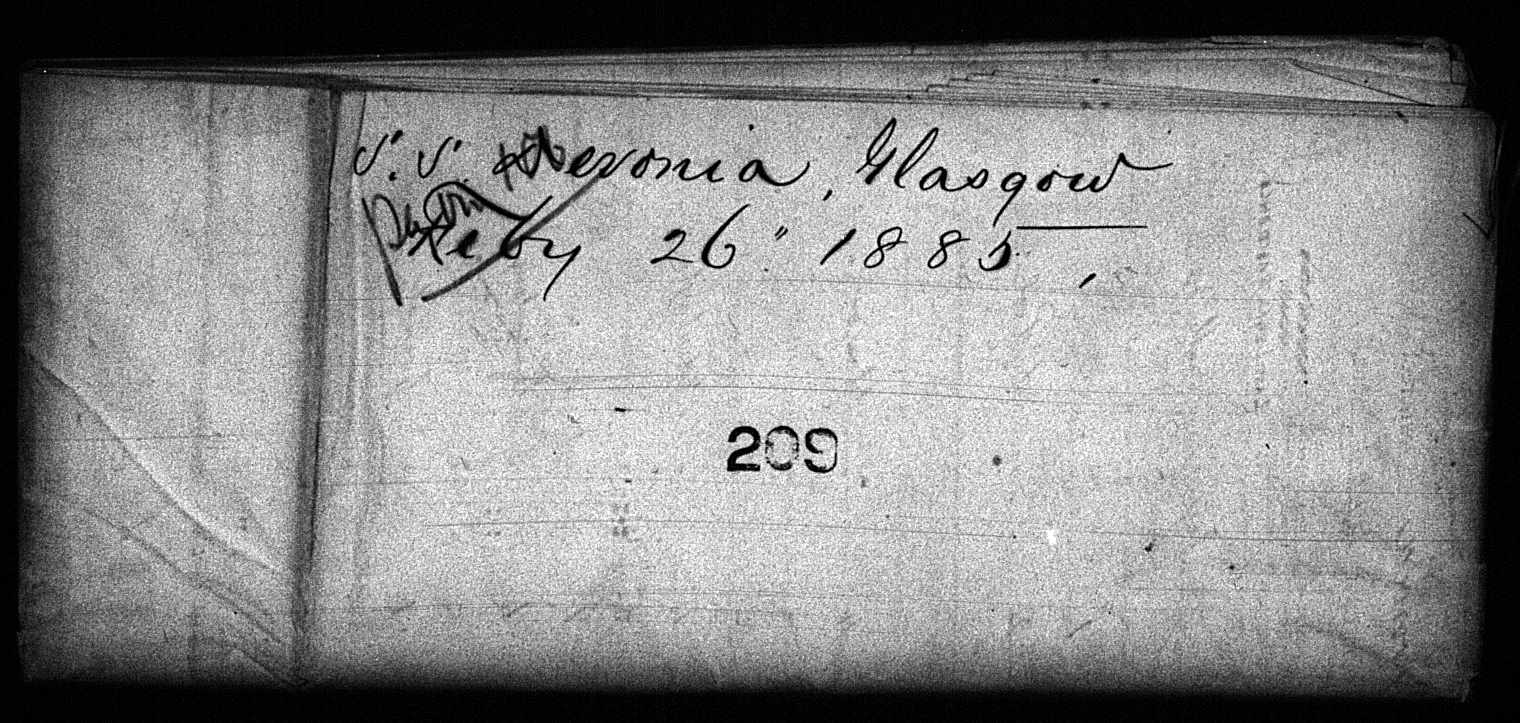 S.S. Devonia, Glasgow
Feby 26" 1885,
209